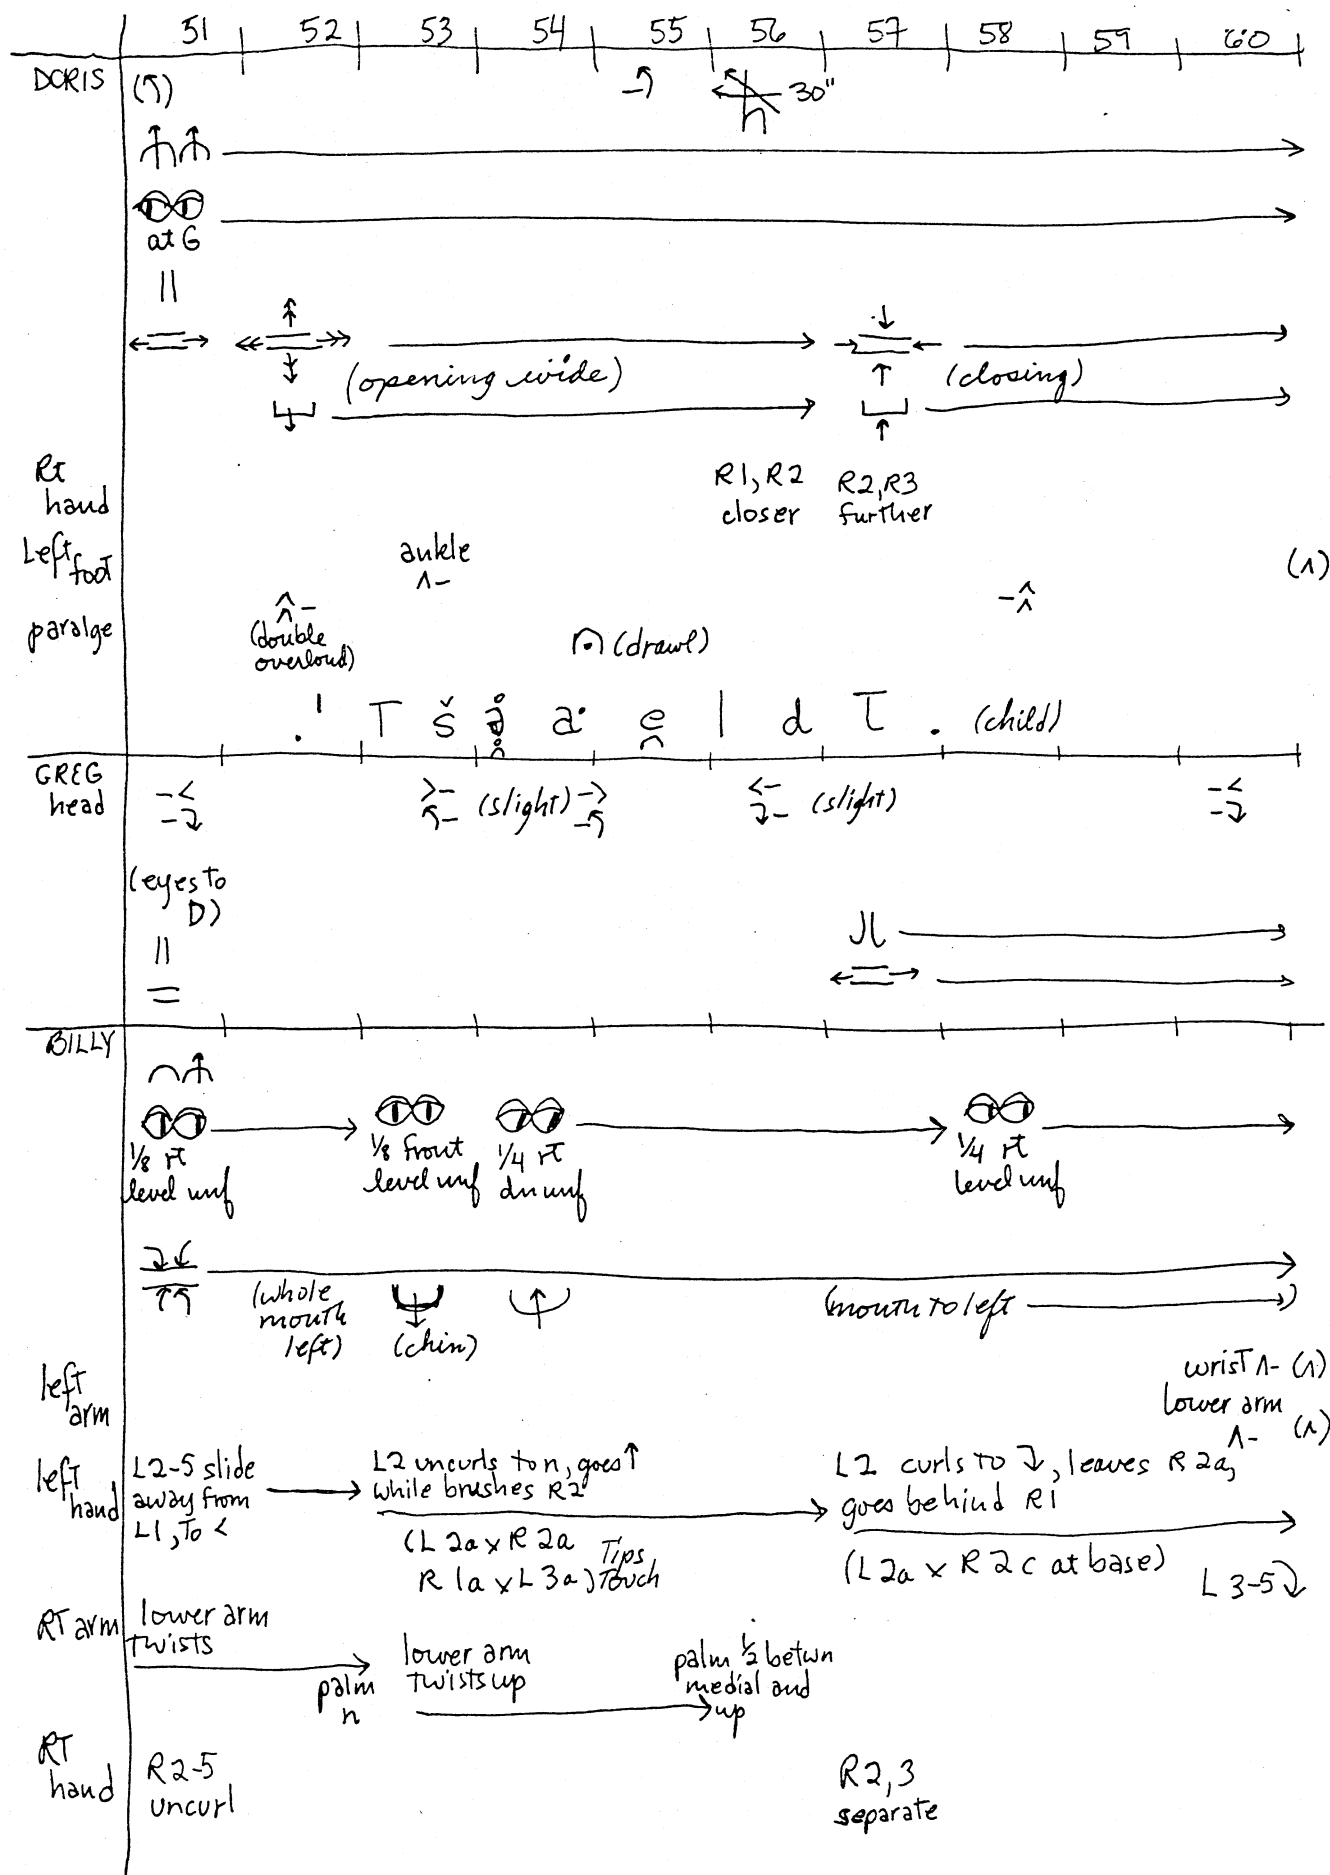 51 52 53 54 55 56 57 58 59 60
DORIS
30"
at G
(opening wide) (closing)
Rt
hand
R1, R2
closer
R2, R3
further
Left
foot
ankle
paralge
(double
overloud)
(drawl)
(child)
GREG
head
(slight) (slight)
(eyes to
D)
BILLY
1/8 rt
level unf
1/8 front
level unf
1/4 rt
dn unf
1/4 rt
level unf
(whole
mouth
left)
(chin)
(mouth to left )
left
arm
wrist
lower arm
left
hand
L2-5 slide
away from
L1, to <
L2 uncurls to n, goes ↑
while brushes R2
(L 2a x R 2a
R 1a x L 3a)
Tips
Touch
L2 curls to , leaves R 2a,
goes behind R1
(L2a x R2c at base)
L 3-5
RT arm
lower arm
twists
palm
n
lower arm
twists up
palm 1/2 betwn
medial and
up
RT
hand
R2-5
uncurl
R2,3
separate